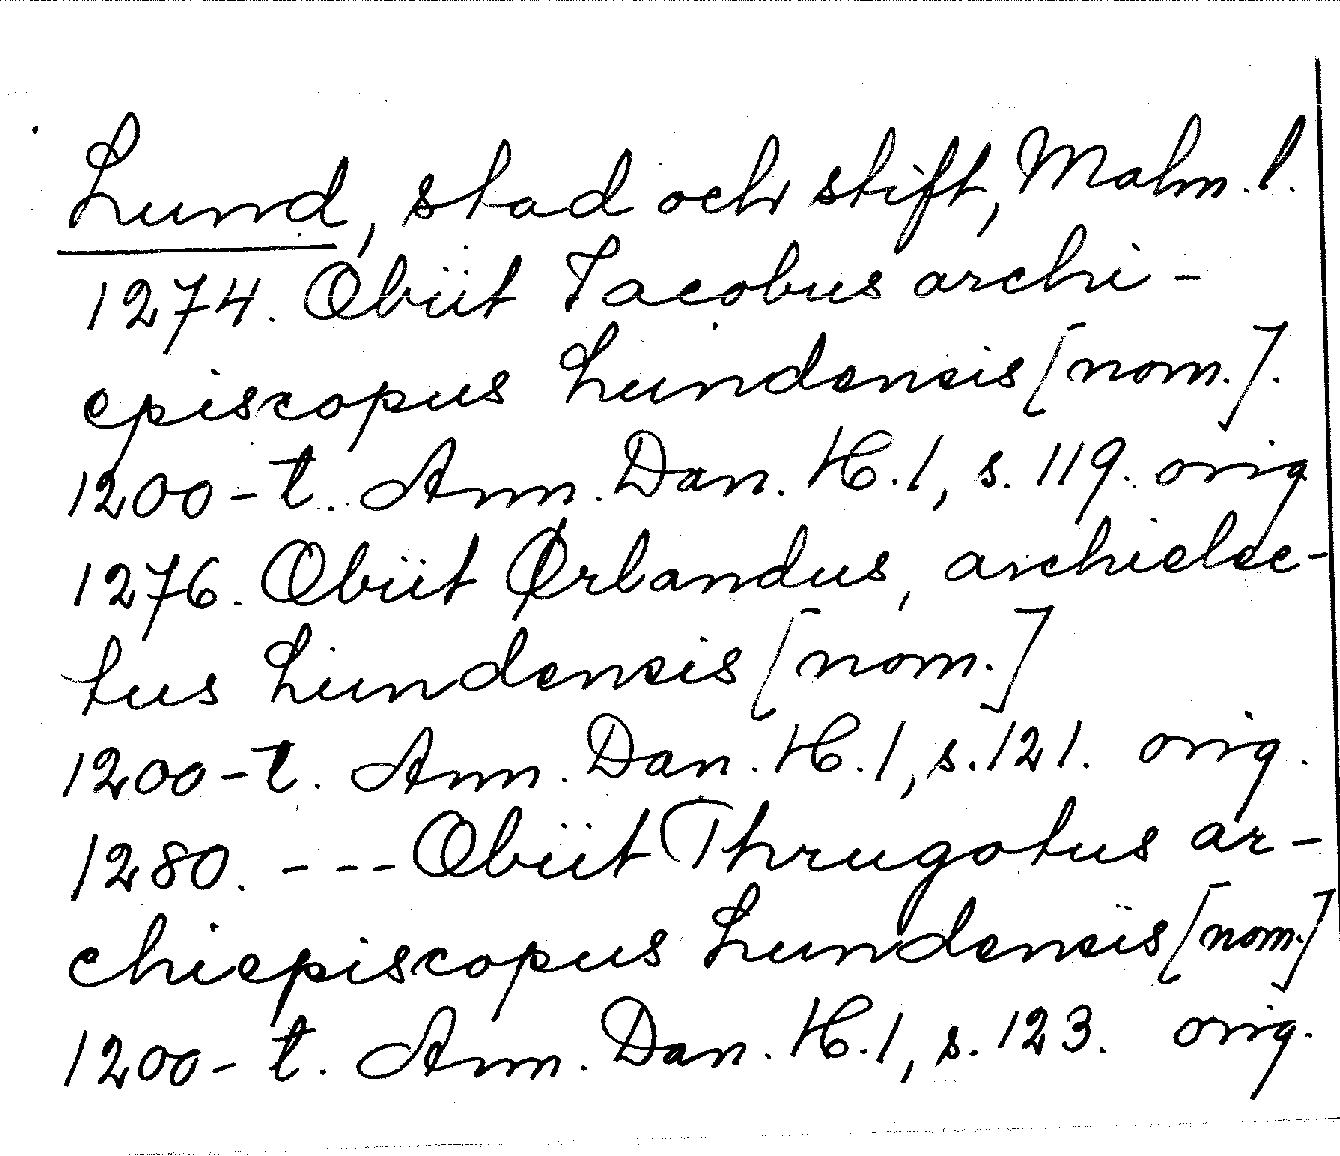 Lund, stad och stift, Malm. l.
1274. Obiit Jacobus archi-
episcopus Lundensis [nom.].
1200-t. Ann. Dan. H. 1, s. 119. orig
1276. Obiit Ørlandus, archielec-
tus Lundensis [nom.]
1200-t. Ann. Dan. H. 1, s. 121. orig.
1280. --- Obiit Thrugotus ar-
chiepiscopus Lundensis [nom.]
1200-t. Ann. Dan. H. 1, s. 123. orig.